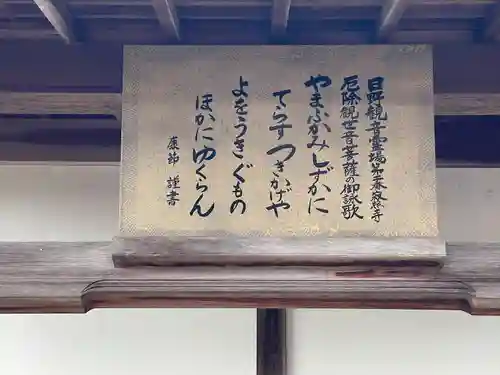 日野観音霊場第番寺
厄除観世音菩薩の御詠歌
やまふかみしずかに
てらすつきかげや
よをうきぐもの
ほかにゆくらん
謹書